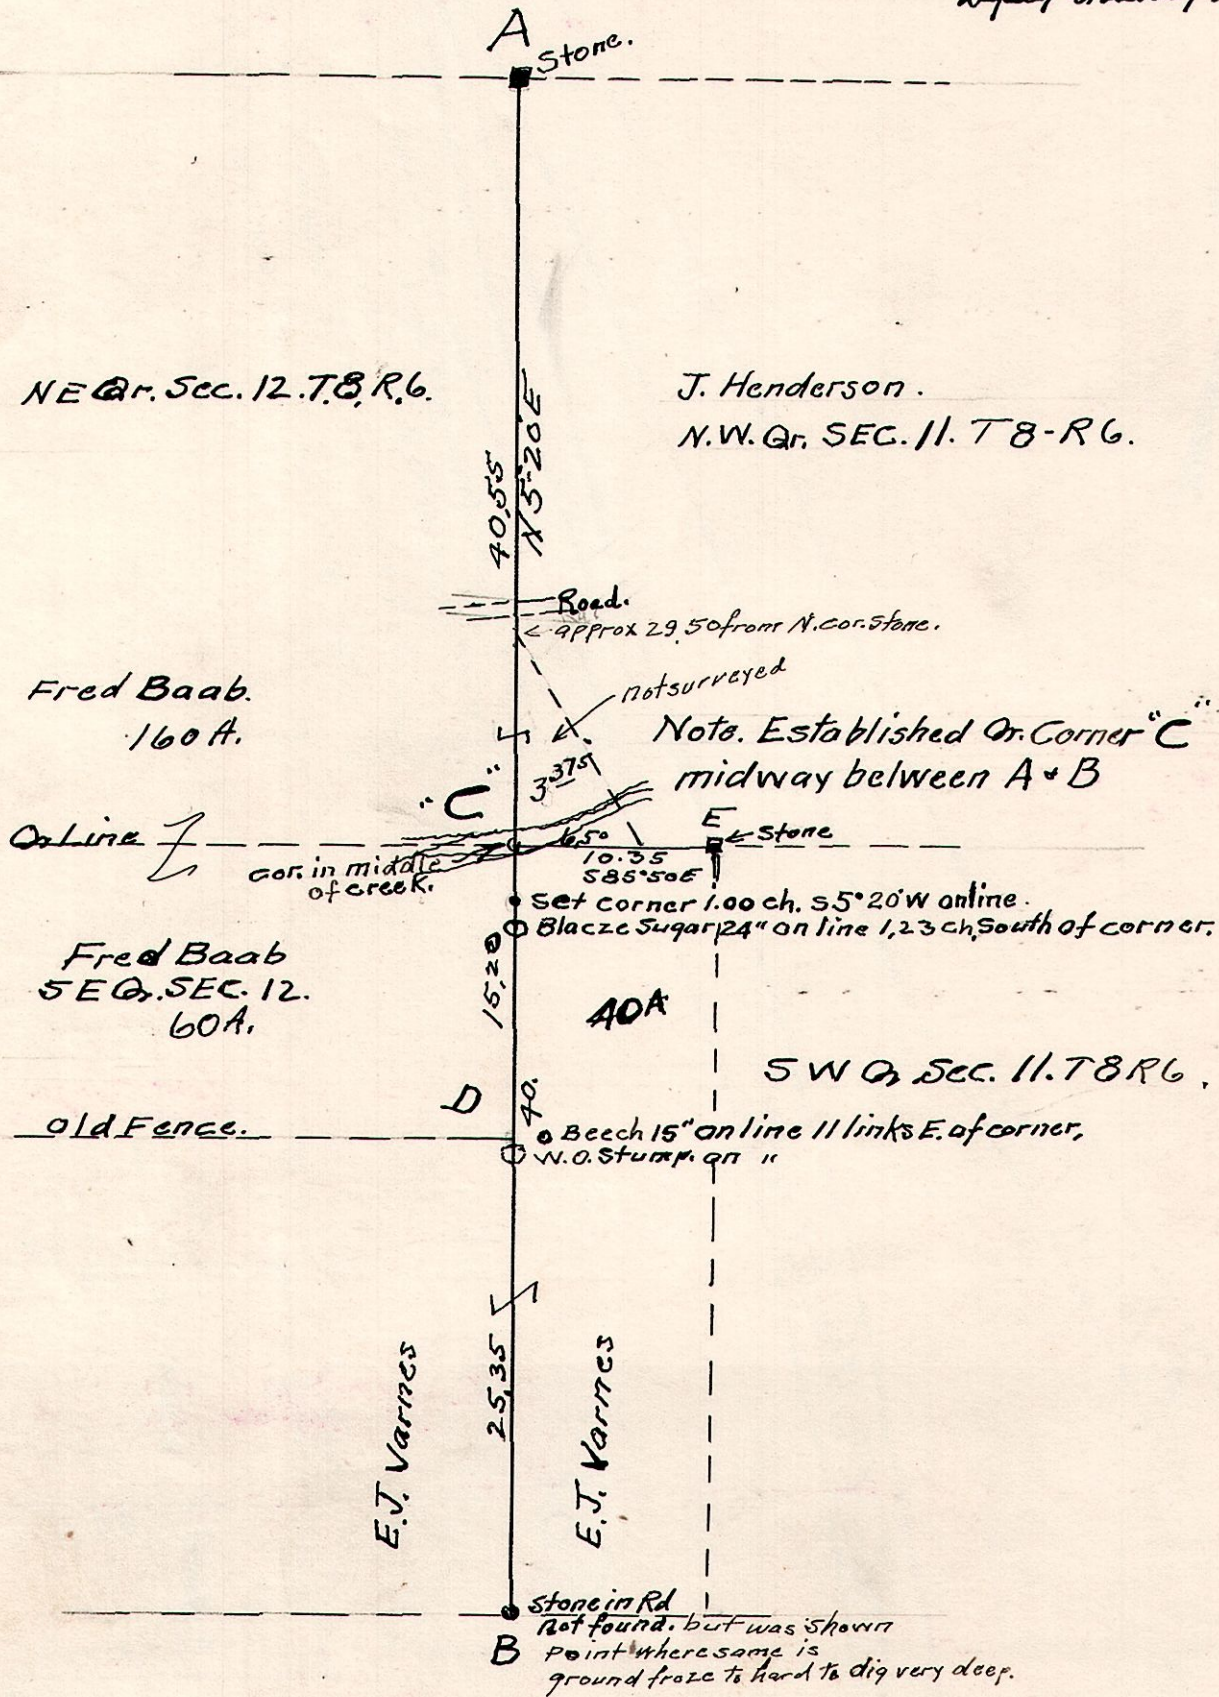 Deputy
A
Stone.
NE Qr. Sec. 12. T.8, R.6.
J. Henderson.
N.W. Qr. SEC. 11. T 8-R 6.
40.55
N 5°20'E
Road.
approx 29.50 from N. cor. Stone.
not surveyed
Fred Baab.
160 A.
Note. Established Qr. Corner "C"
midway between A & B
3.375
"C"
Qr Line
cor. in middle
of creek.
6.50
10.35
S85°50E
E
Stone
Set corner 1.00 ch. S5°20'W on line.
Blacze Sugar 24" on line 1,23 ch, South of corner.
Fred Baab
S E Qr. SEC. 12.
60 A.
15,20
40A
S W Qr Sec. 11. T8 R6.
D
40.
Old Fence.
Beech 15" on line 11 links E. of corner,
W.O. Stump. on "
25,35
E.J. Varnes
E.J. Varnes
Stone in Rd
not found. but was shown
B Point where same is
ground froze to hard to dig very deep.